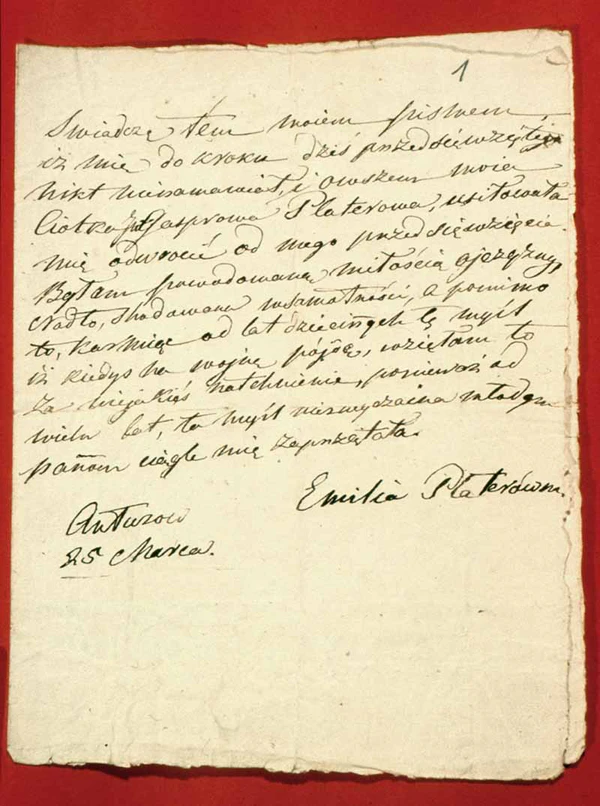 1
Świadczę tém moiem pismem,
iż mię do kroku dziś przedsięwziętego
nikt nienamawiał, i owszem moia
Ciotka Gasprowa Platerowa, usiłowała
mię odwrocić od mego przedsięwzięcia.
Byłam powodowana miłością ojczyzny,
Nadto, shodowana wsamotności, a pomimo
to, karmiąc od lat dziecinnych tę myśl
iż kiedyś na wojnę pójdę, wzięłam to
za niejakiś natchnienie, ponieważ od
wielu lat, ta myśl niezwyczaina młodym
pannom ciągle mię zaprzątała.
Emilia Platerówna.
Antuzow
25 Marca.